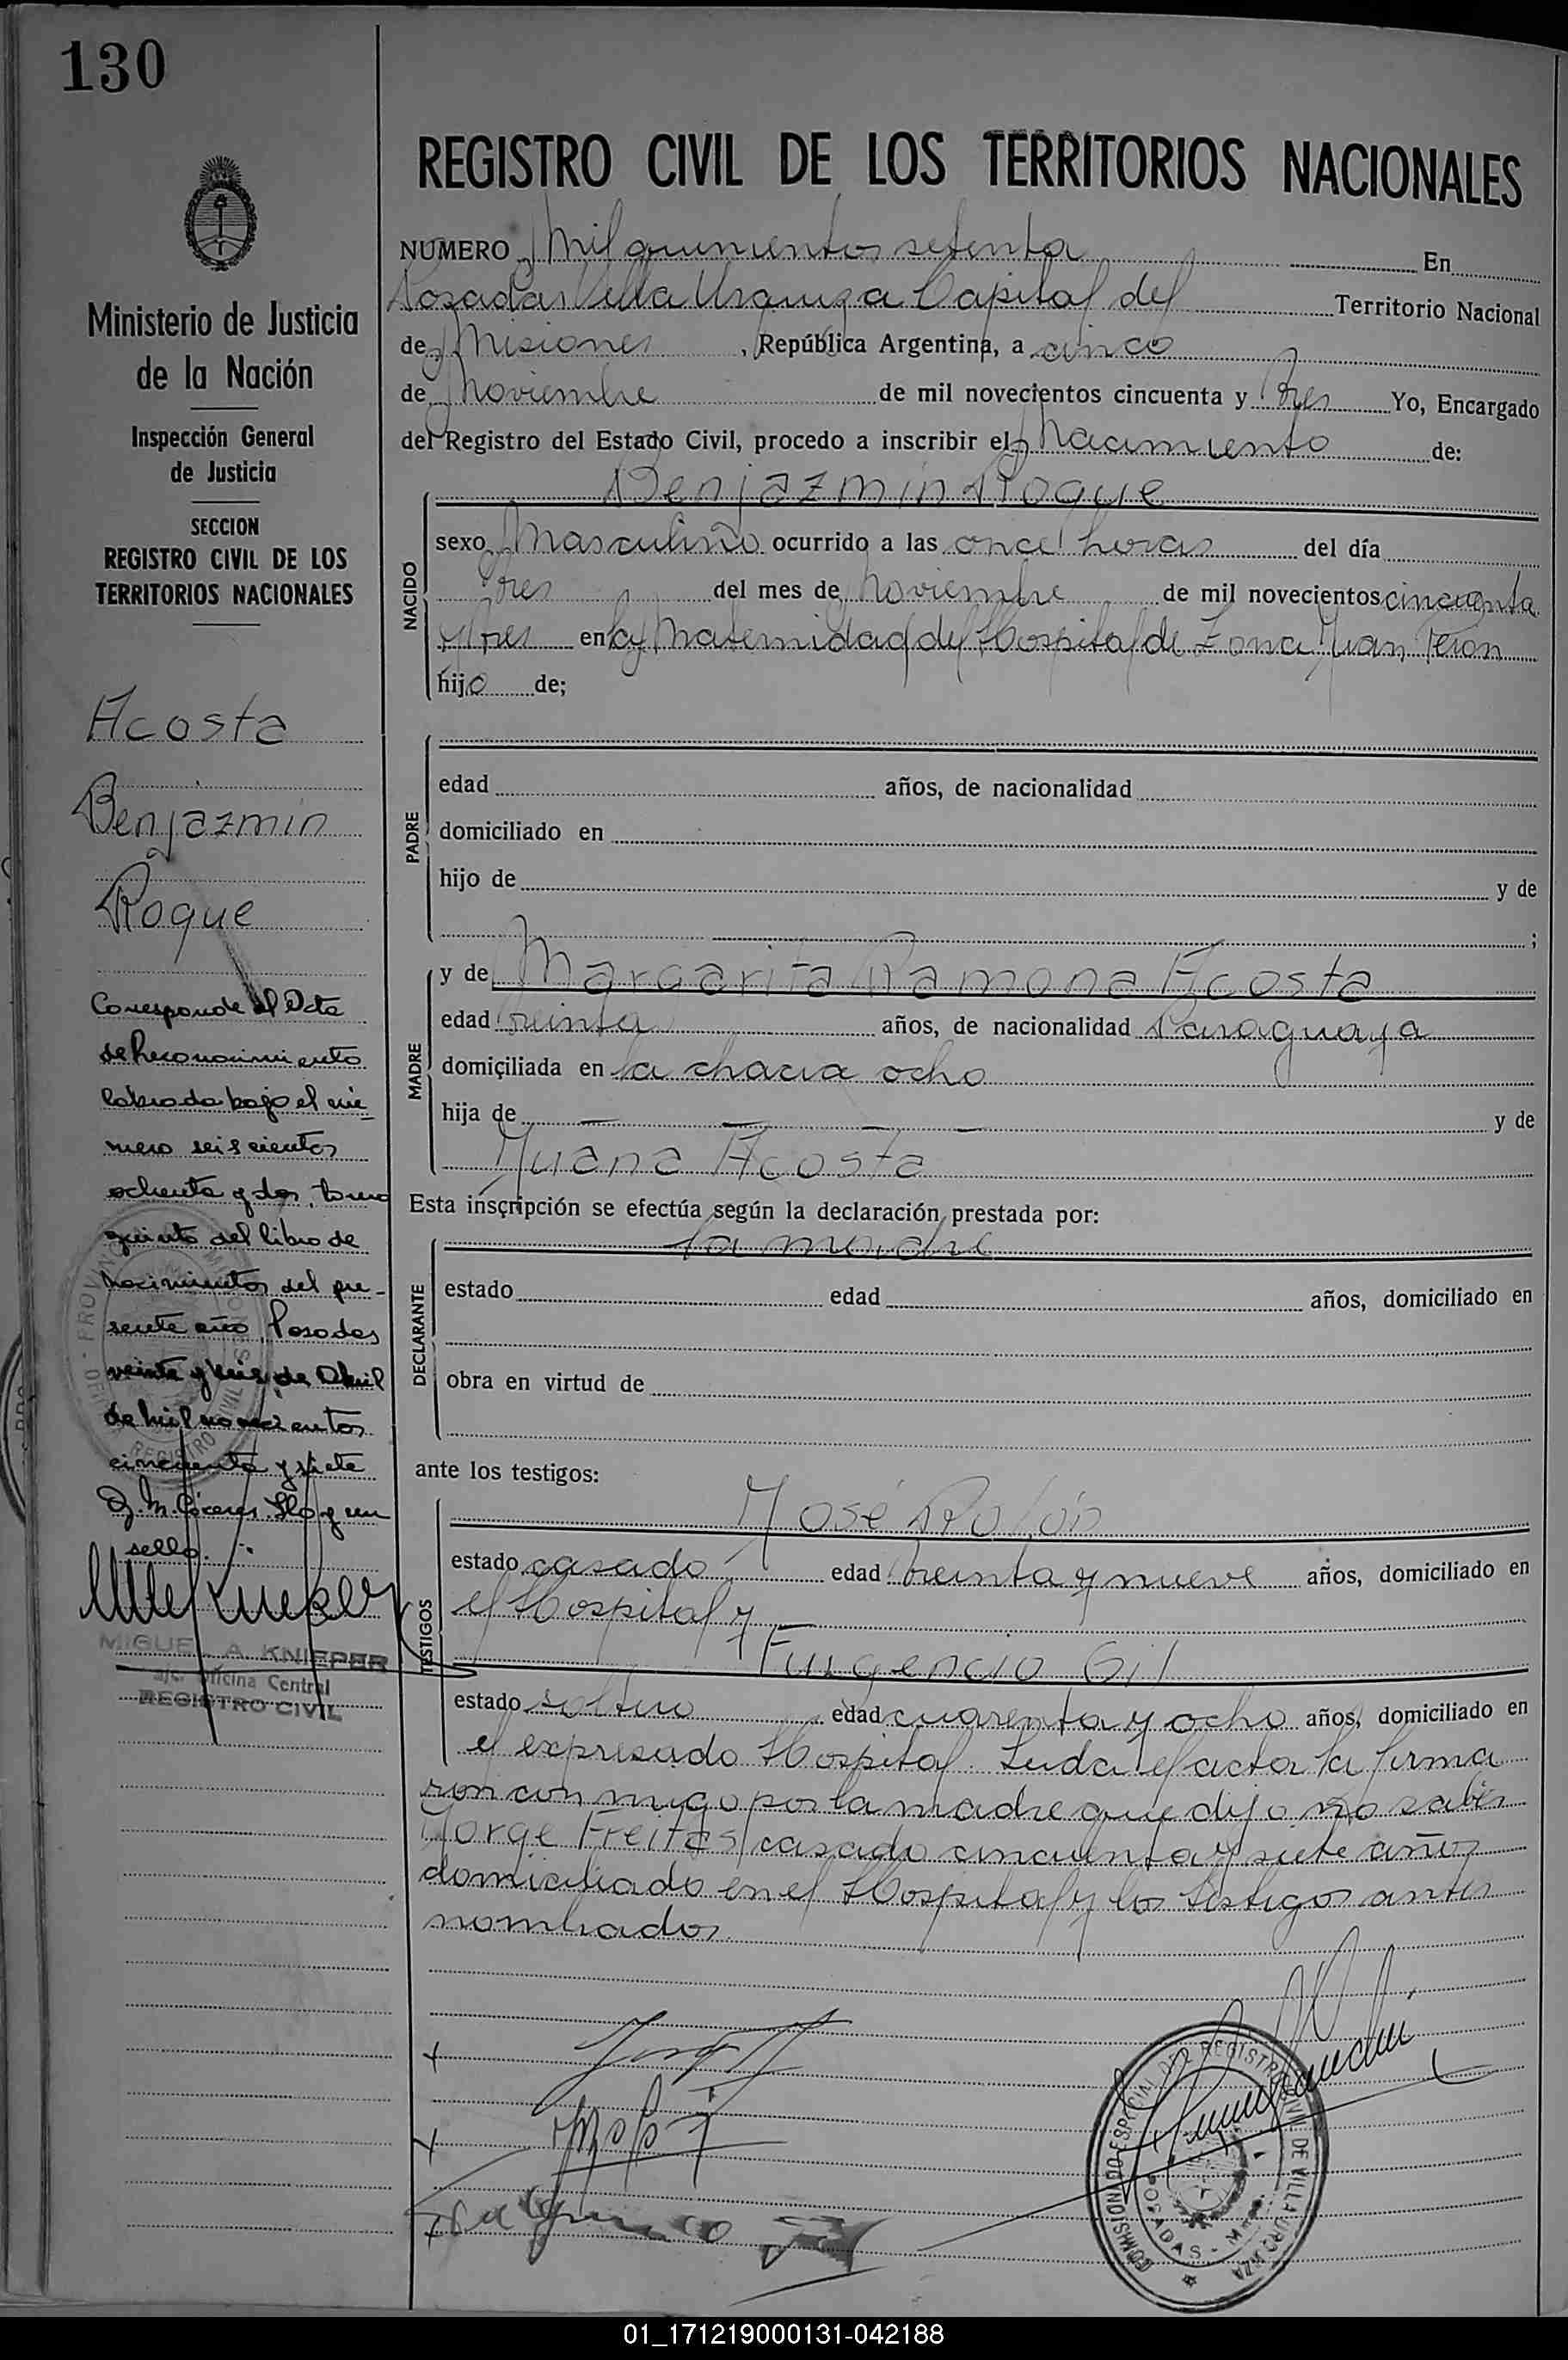 130
Ministerio de Justicia
de la Nación
Inspección General
de Justicia
SECCION
REGISTRO CIVIL DE LOS
TERRITORIOS NACIONALES
Acosta
Benjazmin
Roque
Corresponde al Acta
de Reconocimiento
labrada bajo el nú-
mero seiscientos
ochenta y dos, tomo
quinto del libro de
nacimientos del pre-
sente año, Posadas
veinte y seis de Abril
de mil novecientos
cincuenta y siete
J. M. Cáceres. Hay un
sello.
MIGUEL A. KNIEPER
a/c. Oficina Central
REGISTRO CIVIL
REGISTRO CIVIL DE LOS TERRITORIOS NACIONALES
NUMERO Mil quinientos setenta En
Posadas Villa Urquiza Capital del Territorio Nacional
de Misiones, República Argentina, a cinco
de Noviembre de mil novecientos cincuenta y tres Yo, Encargado
del Registro del Estado Civil, procedo a inscribir el Nacimiento de:
Benjazmin Roque
NACIDO
sexo Masculino ocurrido a las once horas del día
tres del mes de Noviembre de mil novecientos cincuenta
y tres en la Maternidad del Hospital de Zona Juan Perón
hijo de;
PADRE
edad años, de nacionalidad
domiciliado en
hijo de y de
;
MADRE
y de Margarita Ramona Acosta
edad treinta años, de nacionalidad Paraguaya
domiciliada en la chacra ocho
hija de — — — — y de
Juana Acosta
Esta inscripción se efectúa según la declaración prestada por:
DECLARANTE
la madre
estado edad años, domiciliado en
obra en virtud de
ante los testigos:
TESTIGOS
José
estado casado edad treinta y nueve años, domiciliado en
el Hospital y
Fulgencio Gil
estado soltero edad cuarenta y ocho años, domiciliado en
el expresado Hospital. Leida el acta la firma
ron con migo por la madre que dijo no saber
Jorge Freitas casado cincuenta y siete años
domiciliado en el Hospital y los testigos antes
nombrados.
COMISIONADO ESPECIAL DEL REGISTRO CIVIL DE VILLA URQUIZA
POSADAS - Mnes.
01_171219000131-042188